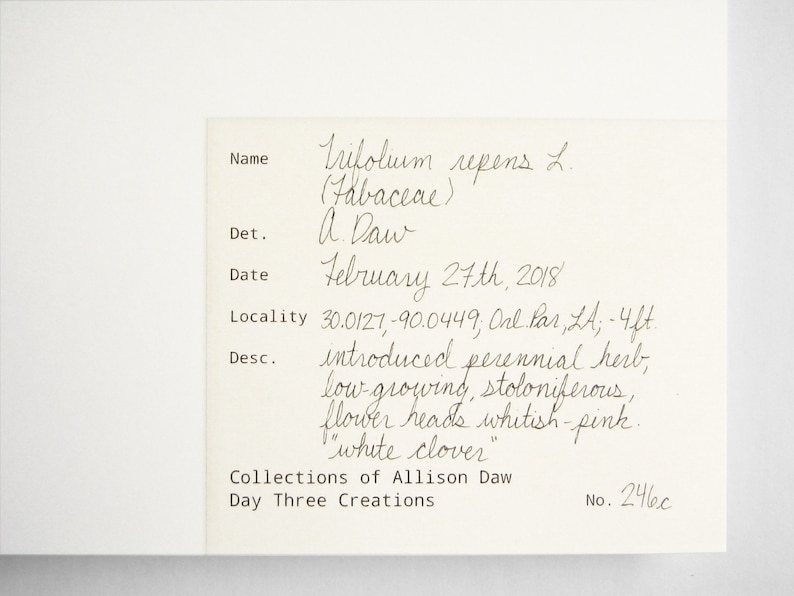 Name Trifolium repens L.
(Fabaceae)
Det. A. Daw
Date February 27th, 2018
Locality 30.0127, -90.0449; Orl. Par, LA; -4ft.
Desc. introduced perennial herb,
low-growing, stoloniferous,
flower heads whitish-pink.
"white clover"
Collections of Allison Daw
Day Three Creations No. 246c